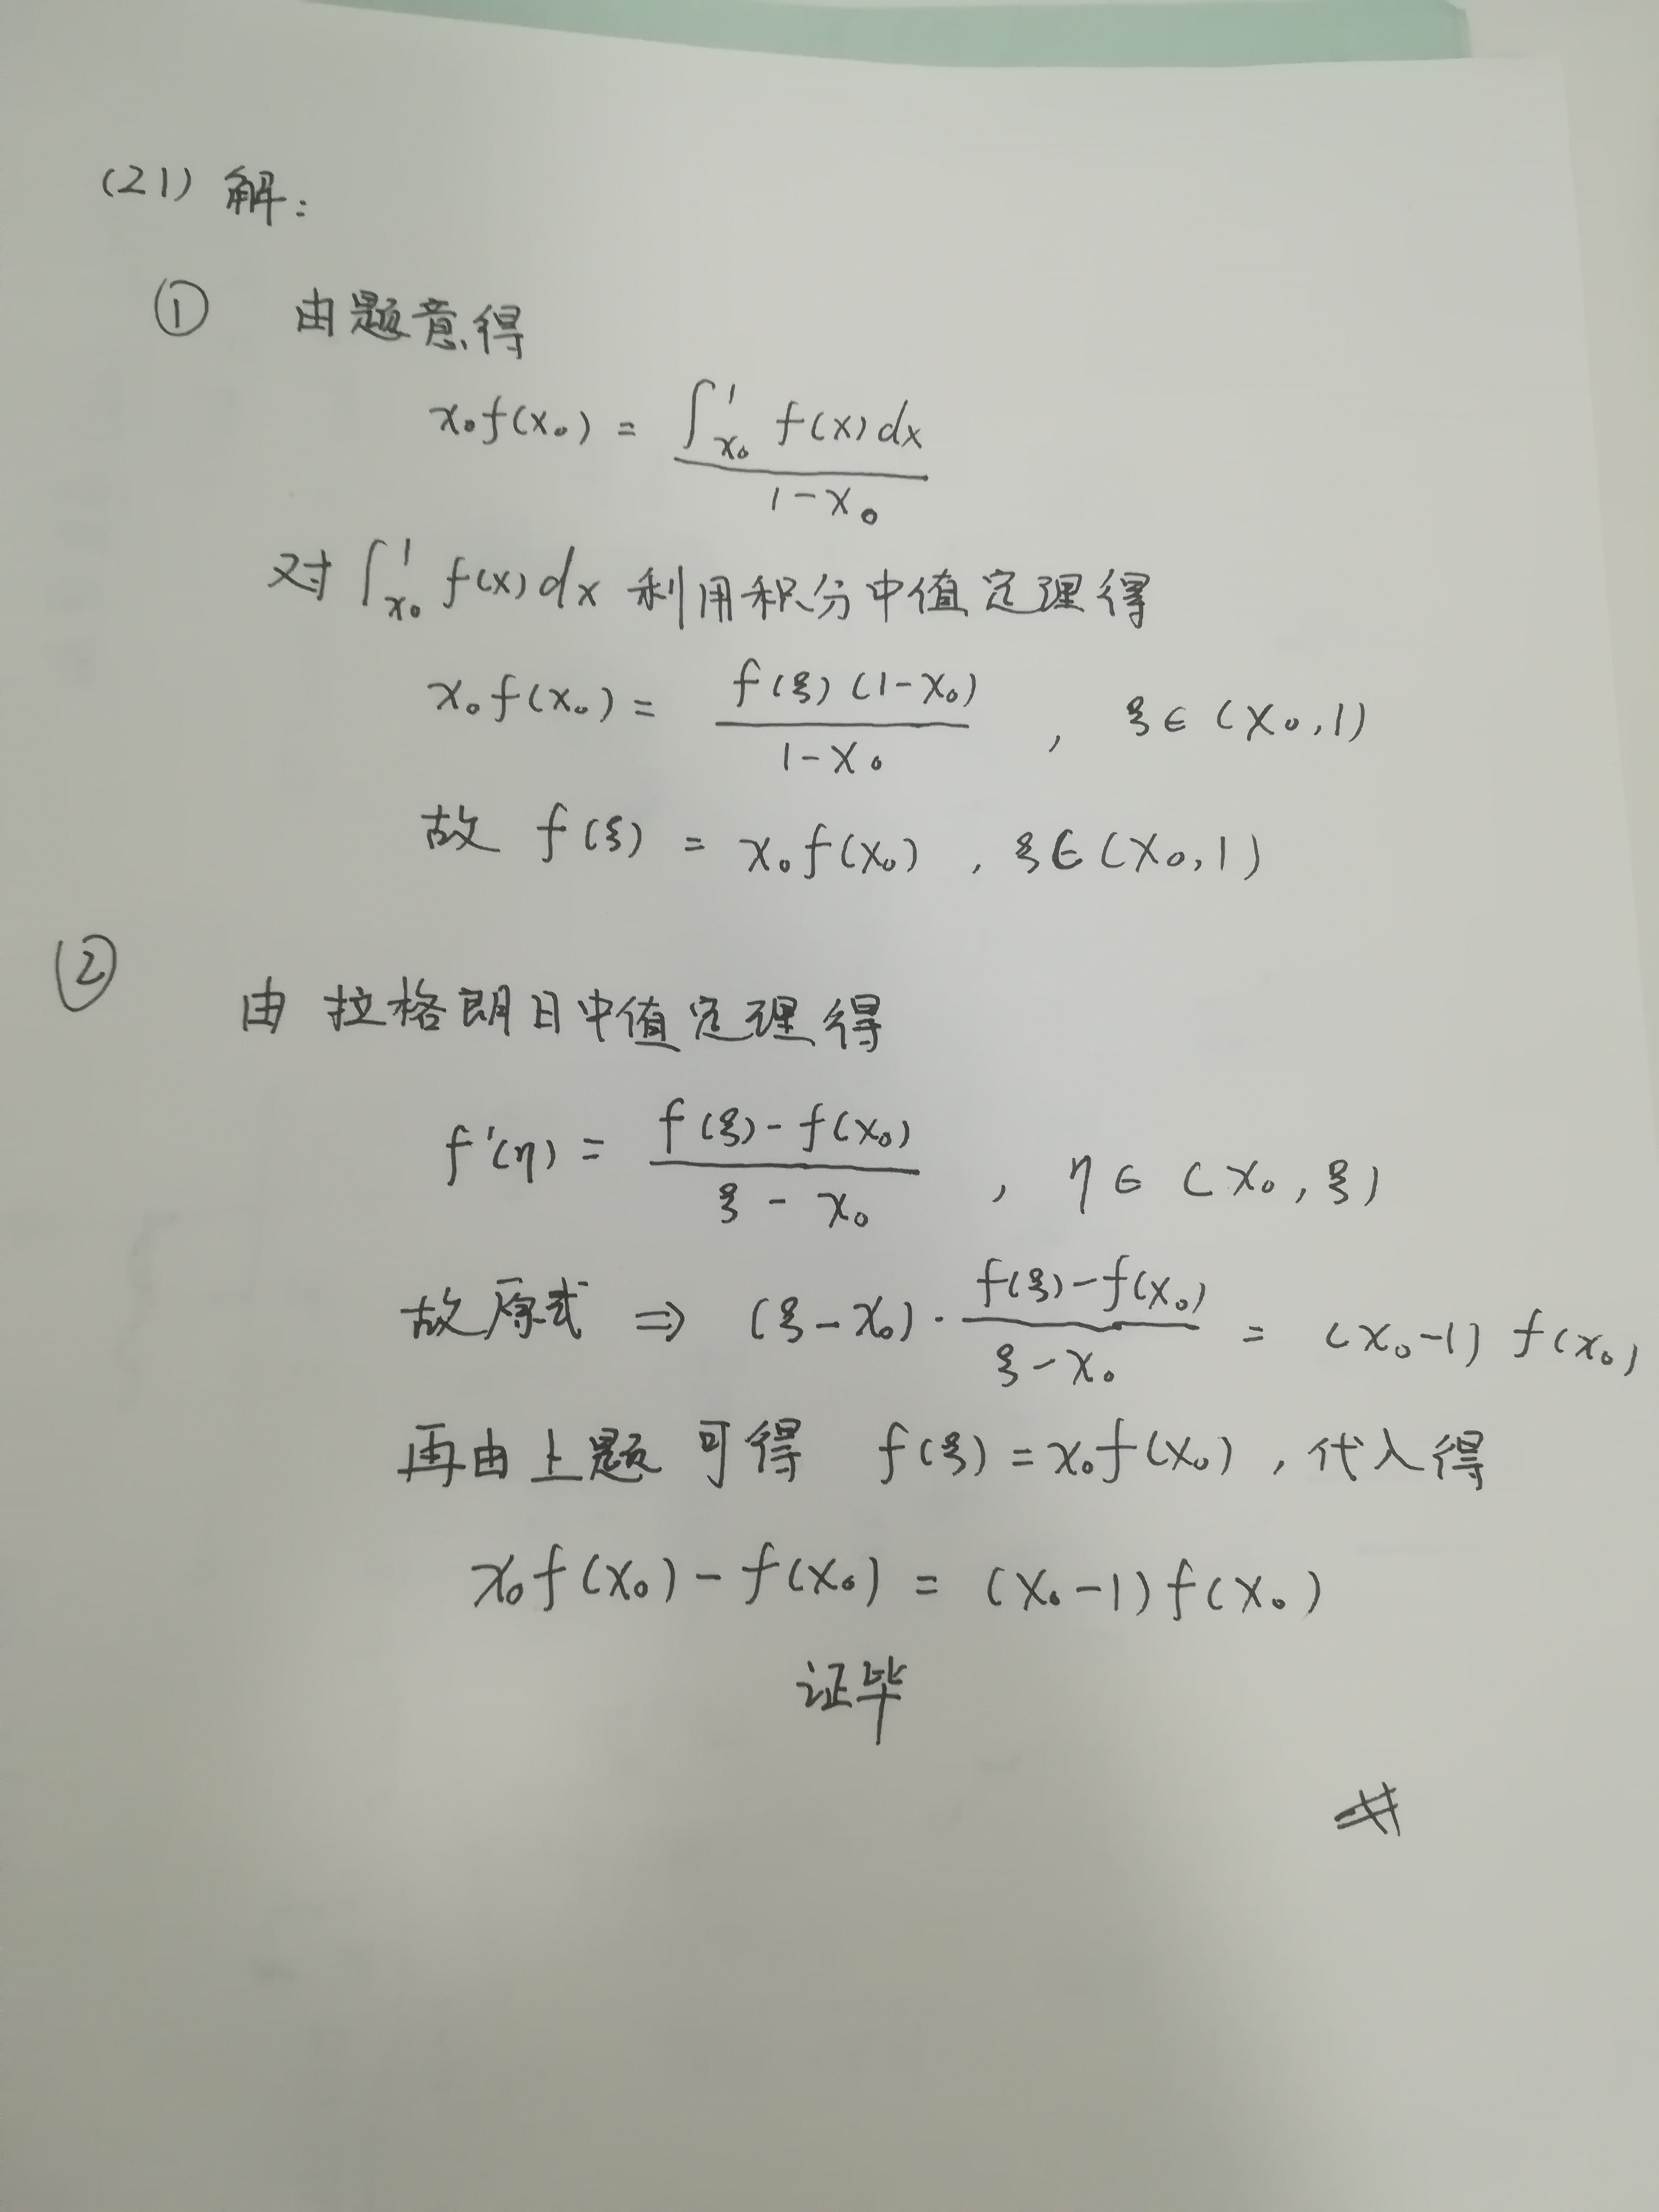 (21) 解:
① 由题意得
x₀f(x₀) = \frac{∫_{x₀}^{1} f(x)dx}{1-x₀}
对 ∫_{x₀}^{1} f(x)dx 利用积分中值定理得
x₀f(x₀) = \frac{f(ξ)(1-x₀)}{1-x₀} , ξ∈(x₀,1)
故 f(ξ) = x₀f(x₀) , ξ∈(x₀,1)
② 由拉格朗日中值定理得
f'(η) = \frac{f(ξ)-f(x₀)}{ξ-x₀} , η∈(x₀,ξ)
故原式 ⇒ (ξ-x₀)·\frac{f(ξ)-f(x₀)}{ξ-x₀} = (x₀-1)f(x₀)
再由上题可得 f(ξ)=x₀f(x₀) , 代入得
x₀f(x₀)-f(x₀) = (x₀-1)f(x₀)
证毕
#